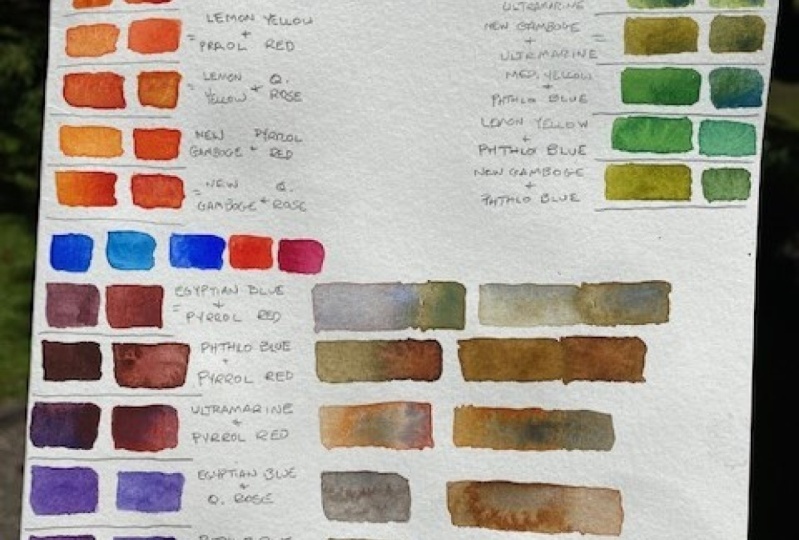 LEMON YELLOW
+
PRROL RED
=
LEMON Q.
YELLOW + ROSE
=
NEW PYRROL
GAMBOGE + RED
NEW Q.
= GAMBOGE + ROSE
ULTRAMARINE
NEW GAMBOGE
+
=
ULTRAMARINE
MED. YELLOW
+
PHTHLO BLUE
LEMON YELLOW
+
PHTHLO BLUE
NEW GAMBOGE
+
PHTHLO BLUE
EGYPTIAN BLUE
+
= PYRROL RED
PHTHLO BLUE
+
PYRROL RED
ULTRAMARINE
+
PYRROL RED
EGYPTIAN BLUE
+
Q. ROSE